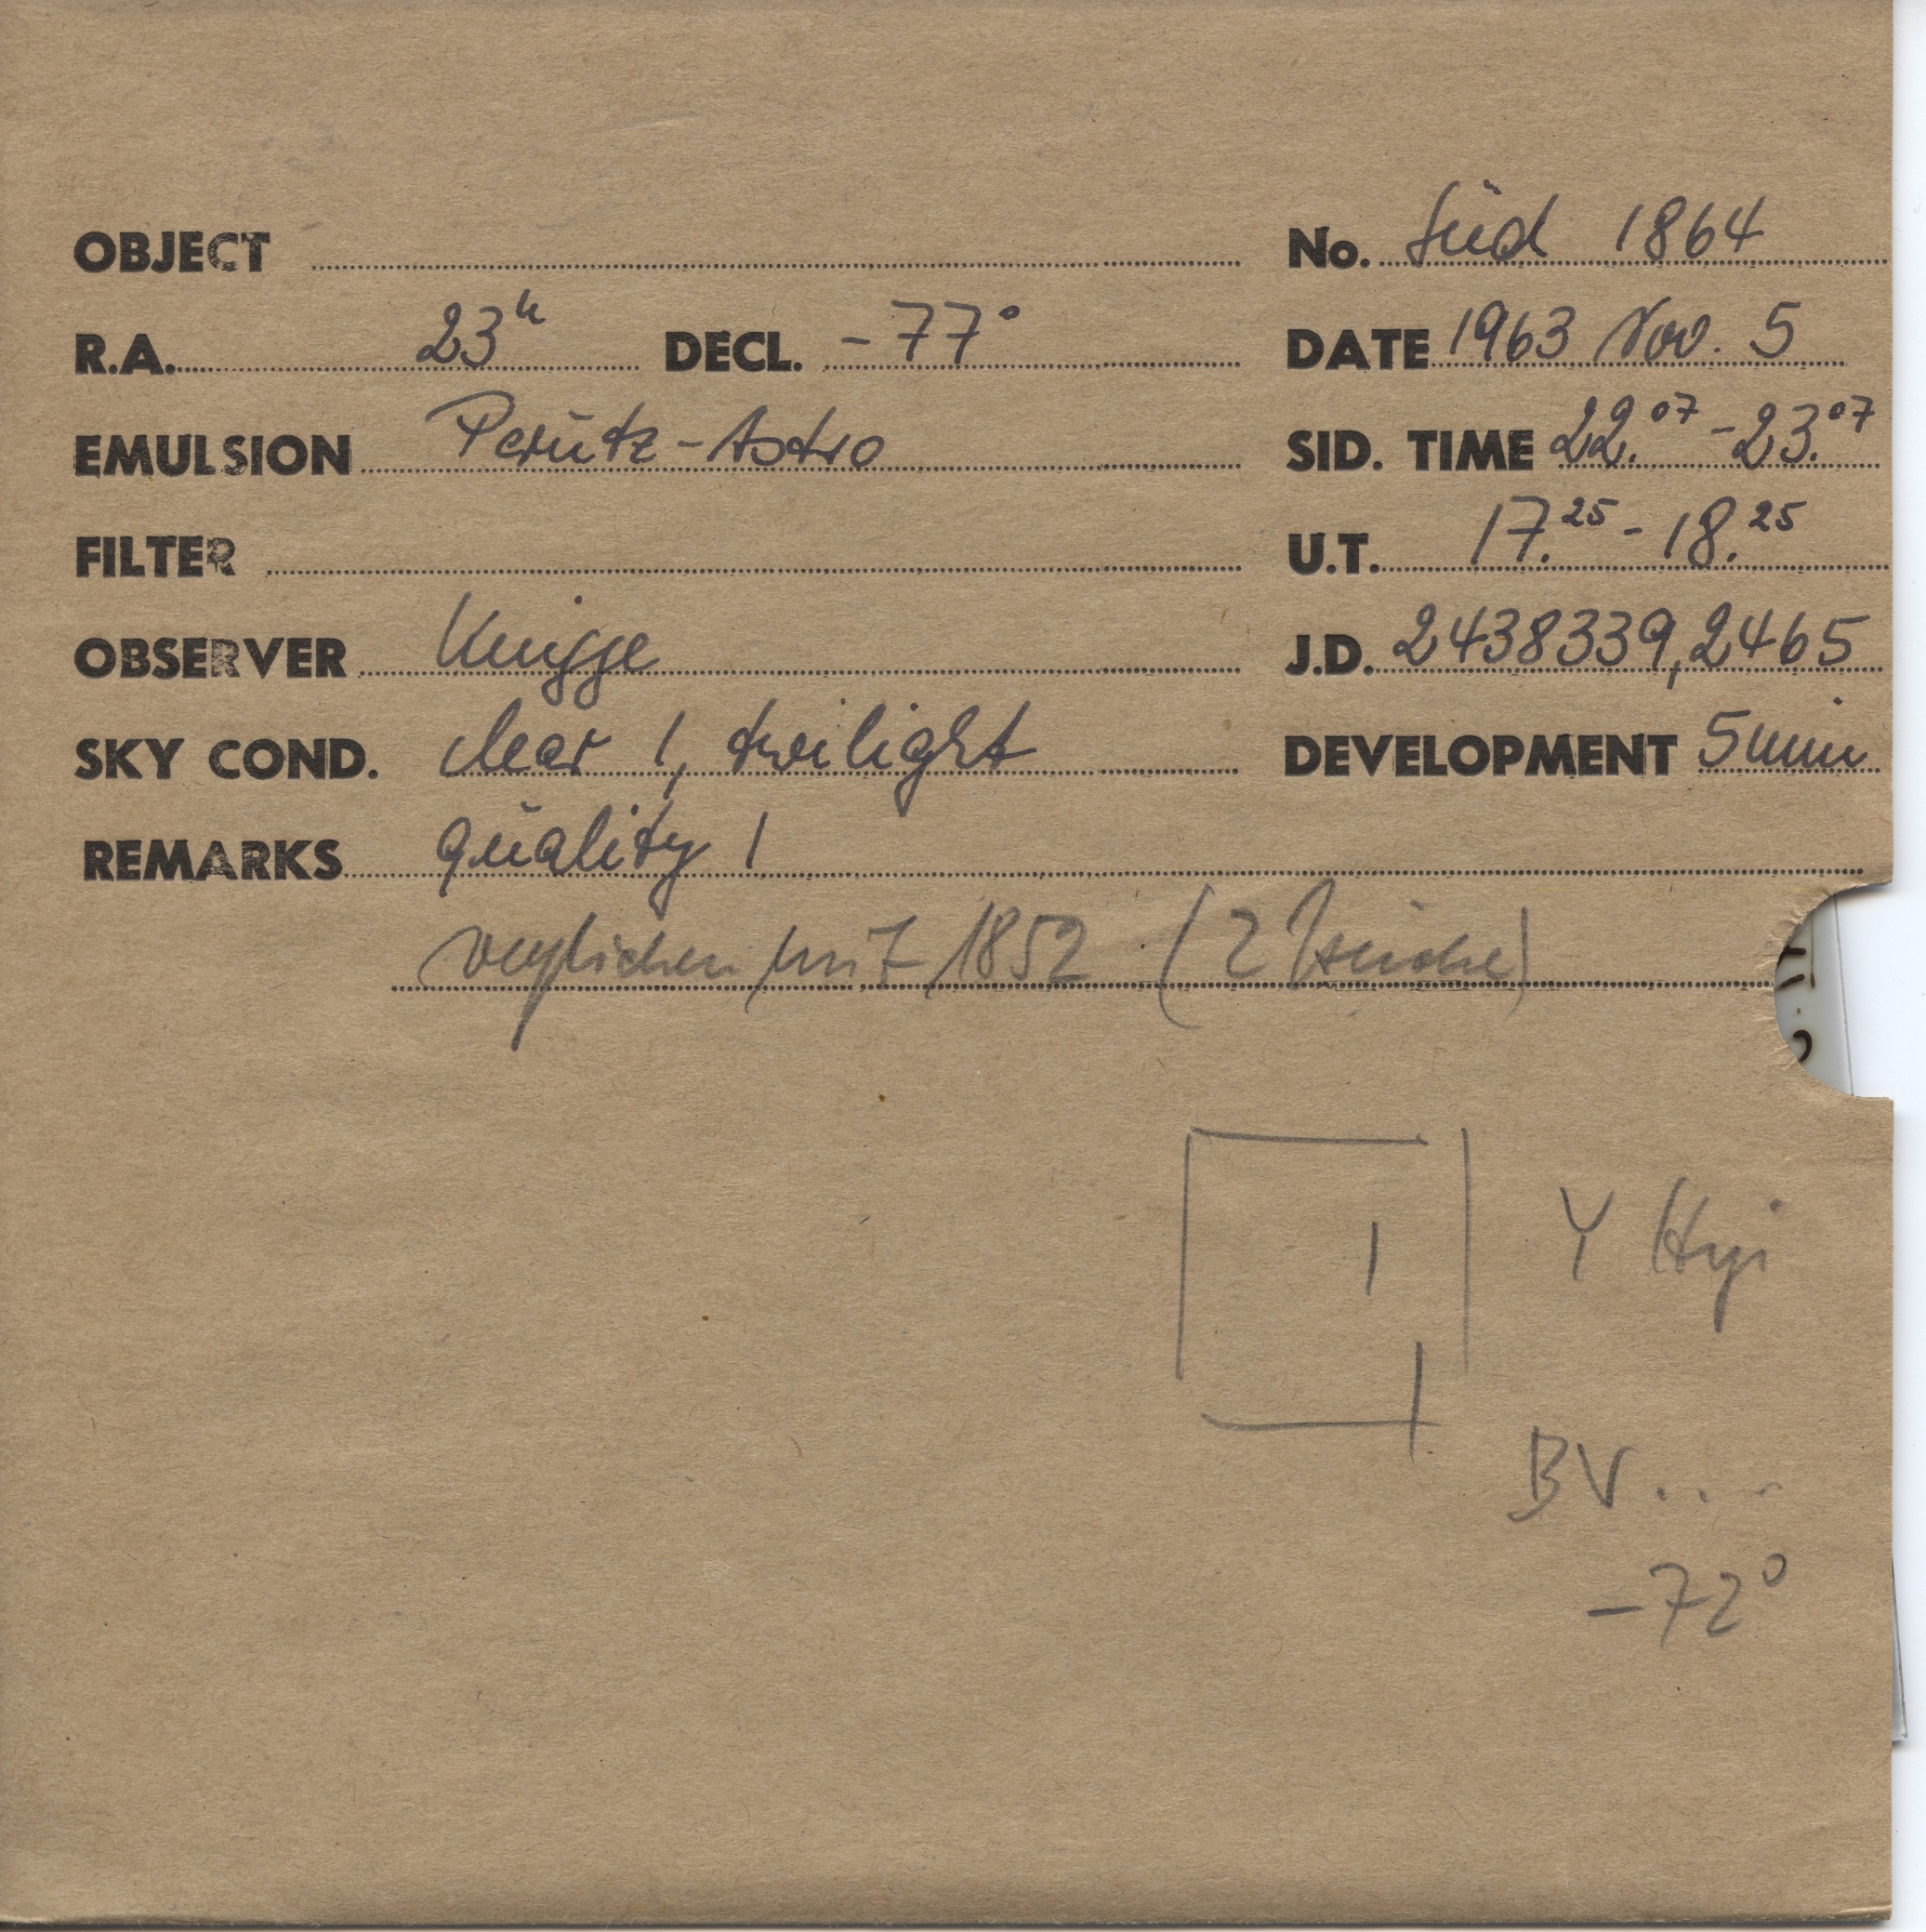 OBJECT No. Süd 1864
R.A. 23h DECL. -77° DATE 1963 Nov. 5
EMULSION Perutz-Astro SID. TIME 22.07 - 23.07
FILTER U.T. 17.25 - 18.25
OBSERVER Knigge J.D. 2438339,2465
SKY COND. clear 1, twilight DEVELOPMENT 5 min
REMARKS quality 1
verglichen mit 1852 (2
Y Hyi
BV...
-72°